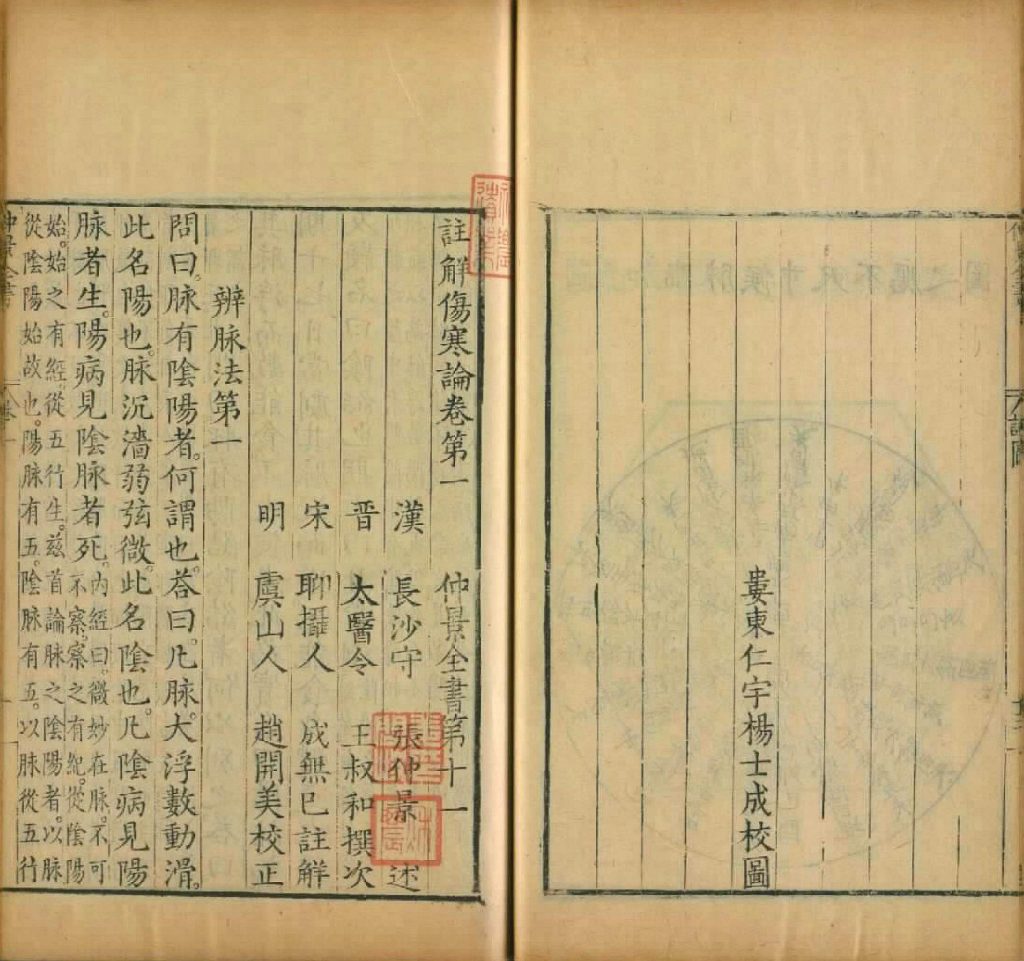 婁東仁宇楊士成校圖
註解傷寒論卷第一　仲景全書第十一
漢　長沙守　張仲景　述
晉　太醫令　王叔和撰次
宋　聊攝人　成無已註解
明　虞山人　趙開美校正
辨脉法第一
問曰。脉有陰陽者。何謂也。荅曰。凡脉。大浮數動滑。
此名陽也。脉沉濇弱弦微。此名陰也。凡陰病見陽
脉者生。陽病見陰脉者死。内經曰。微妙在脉。不可
不察。察之有紀。從陰陽
始。始之有經。從五行生。兹首論脉之陰陽者。以脉
從陰陽始故也。陽脉有五。陰脉有五。以脉從五行
仲景全書
卷一